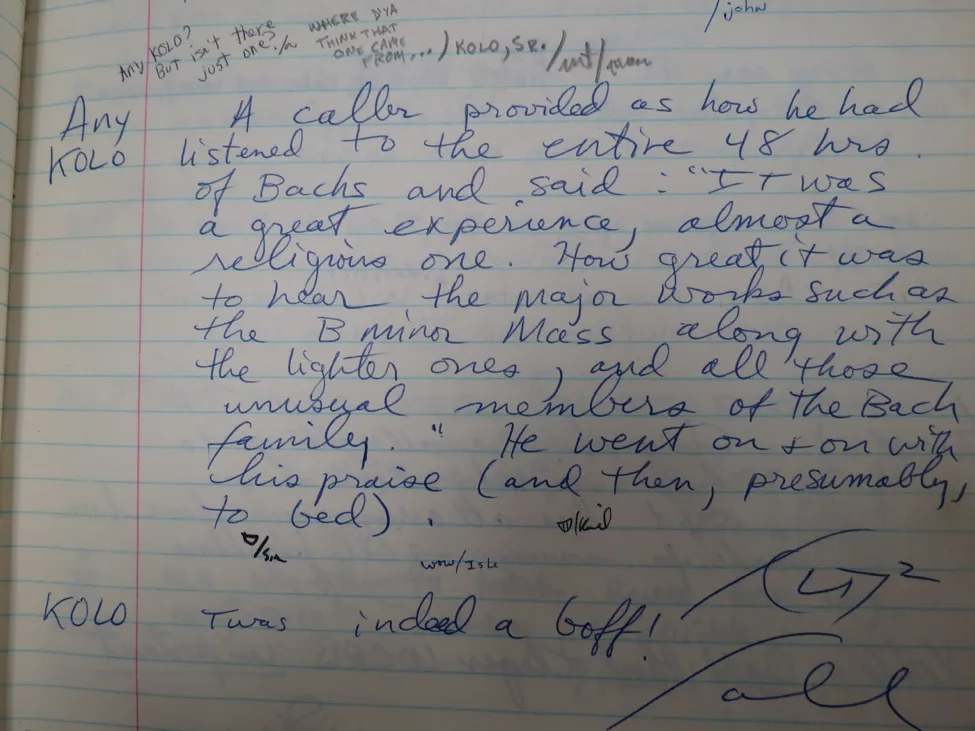 /john
Any KOLO?
But isn't there
just one? /n
WHERE D'YA
THINK THAT
ONE CAME
FROM...) KOLO, SR. /
Any
KOLO
A caller provided as how he had
listened to the entire 48 hrs.
of Bachs and said : "It was
a great experience, almost a
religious one. How great it was
to hear the major works such as
the B minor Mass along with
the lighter ones, and all those
unusual members of the Bach
family." He went on + on with
his praise (and then, presumably,
to bed).
wow/
KOLO
Twas indeed a boff!
all